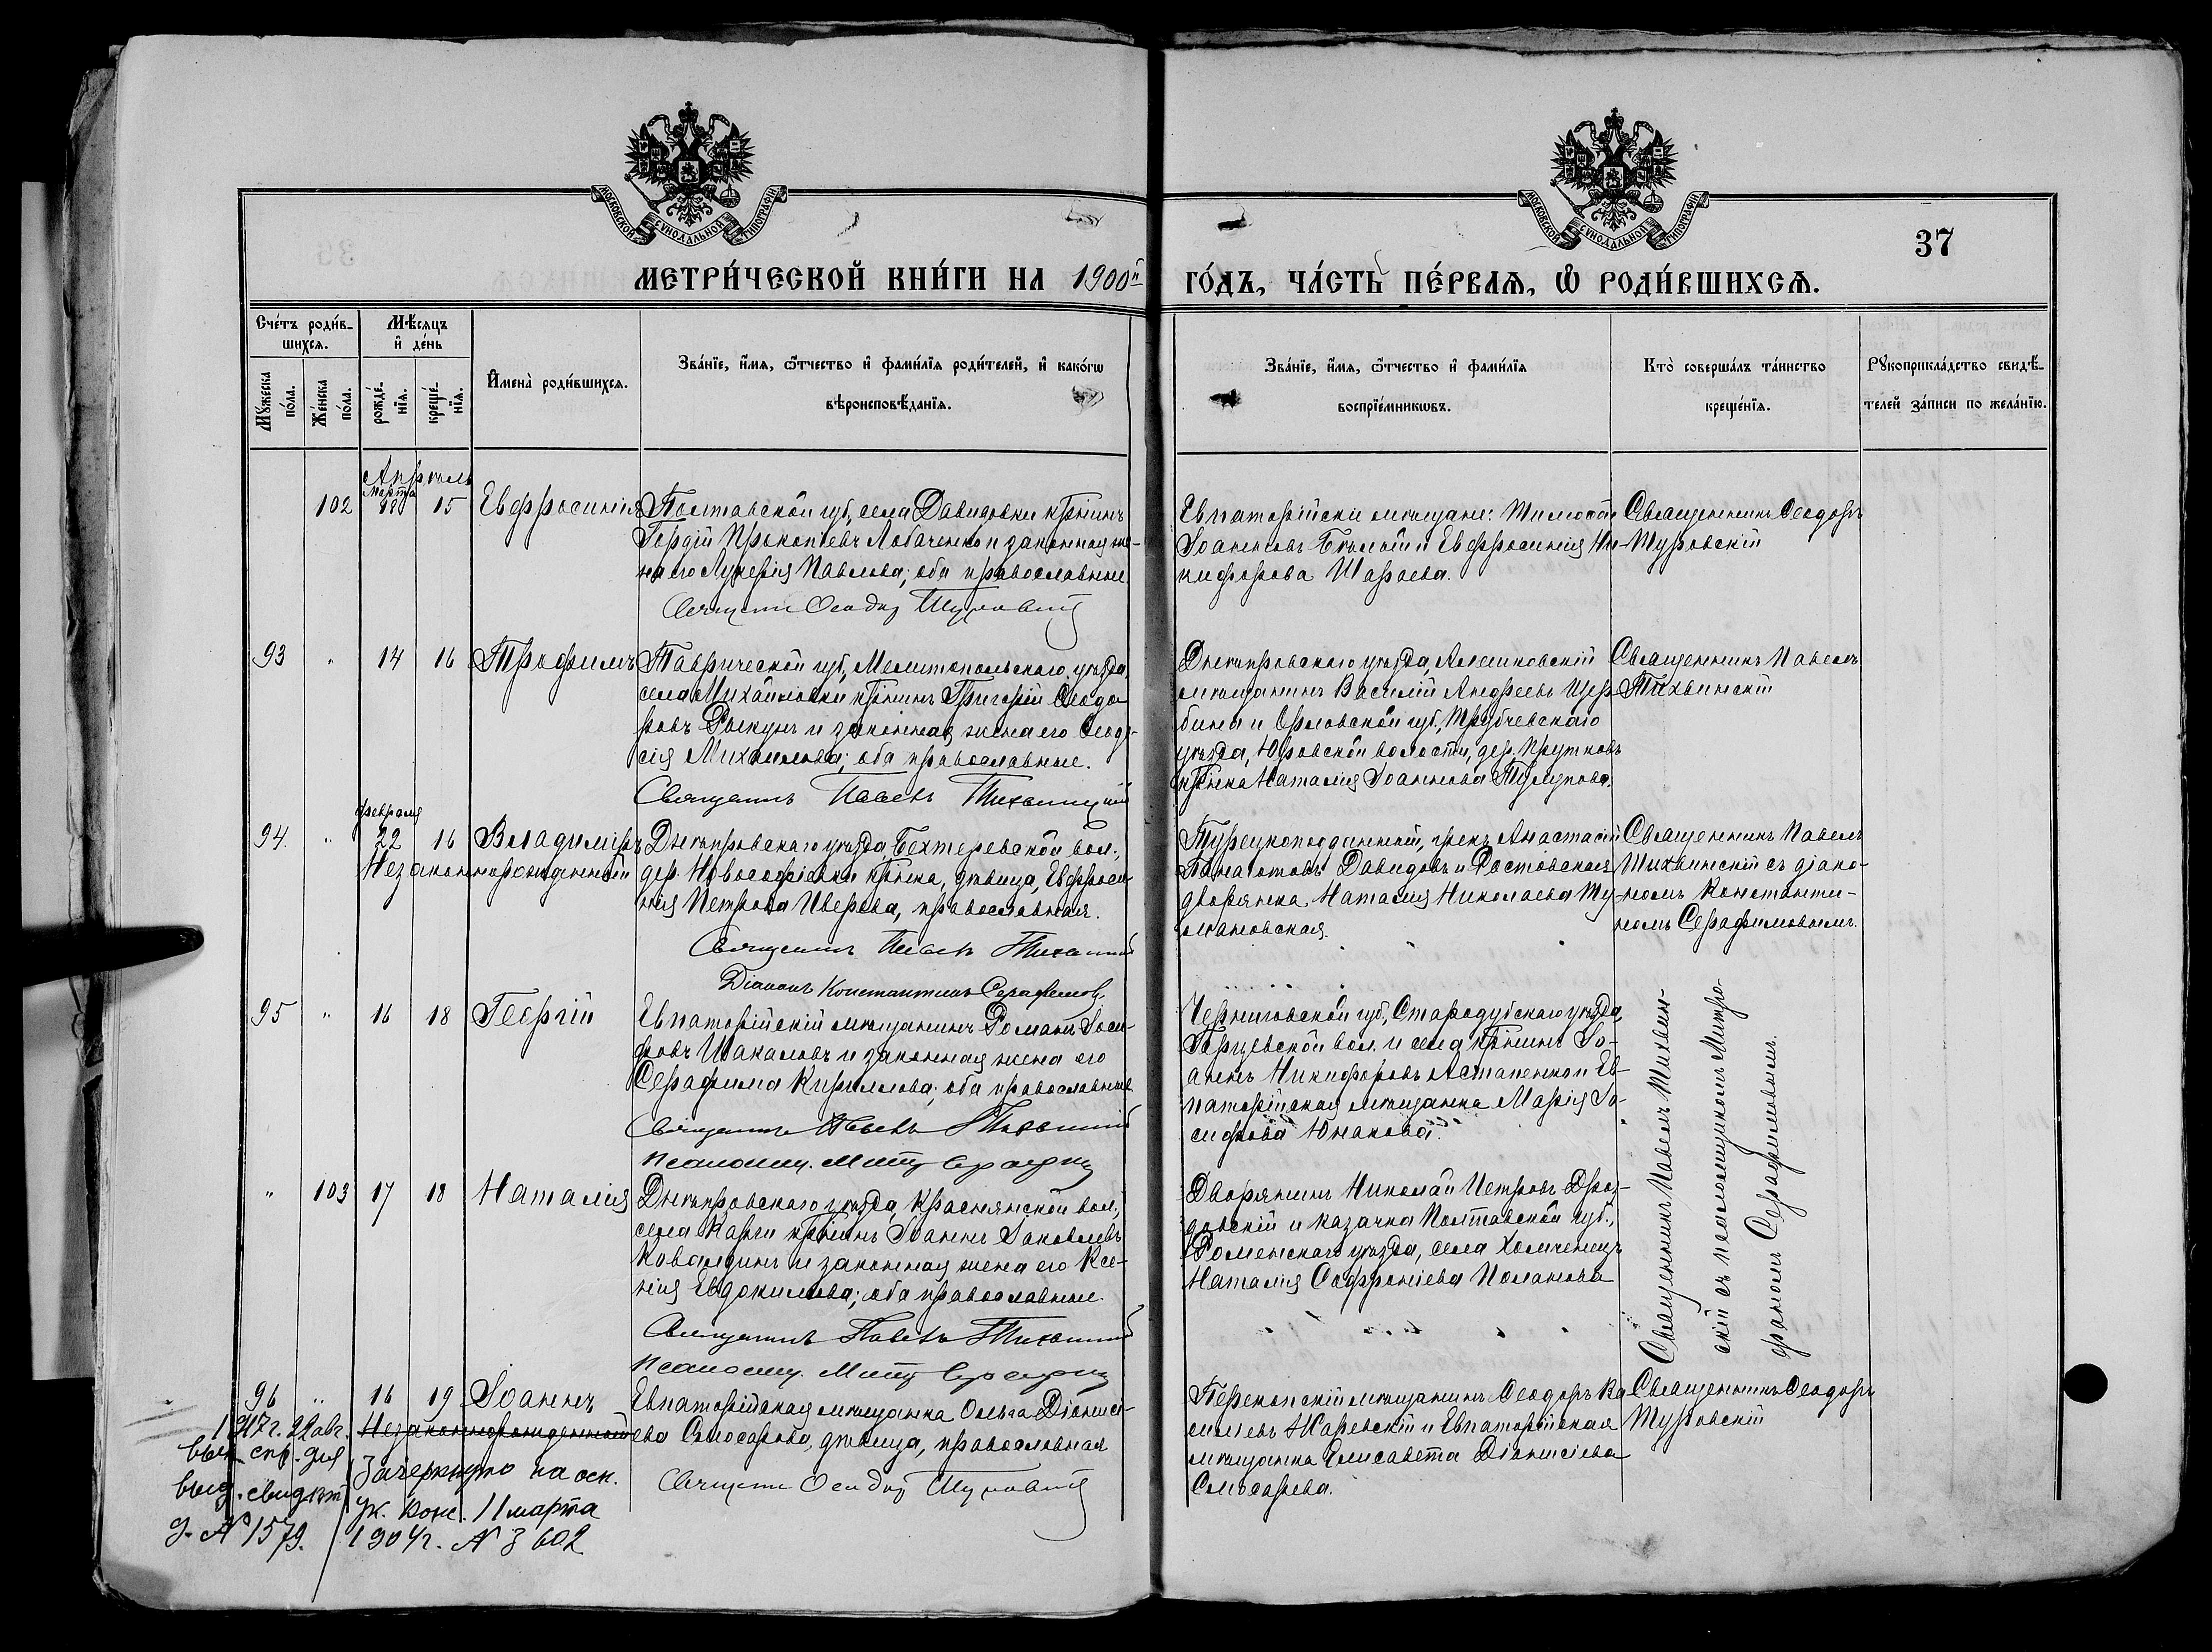 МОСКОВСКОЙ СѴНОДАЛЬНОЙ ТИПОГРАФІИ
МОСКОВСКОЙ СѴНОДАЛЬНОЙ ТИПОГРАФІИ
37
МЕТРИ́ЧЕСКОЙ КНИ́ГИ НА 1900й ГО́ДЪ, ЧА́СТЬ ПЕ́РВАѦ, Ѡ҆ РОДИ́ВШИХСѦ.
Сче́тъ роди́в-
шихсѧ.
Мѣ́сѧцъ
и҆ де́нь
Мꙋ́жеска
по́ла.
Же́нска
по́ла.
рожде́-
нїѧ.
креще́-
нїѧ.
И҆мена̀ роди́вшихсѧ.
Зва́нїе, и҆́мѧ, ѻ҆́тчество и҆ фами́лїѧ роди́телей, и҆ како́гѡ
вѣроисповѣ́данїѧ.
Зва́нїе, и҆́мѧ, ѻ҆́тчество и҆ фами́лїѧ
воспрїе́мникѡвъ.
Кто̀ соверша́лъ та́инство
креще́нїѧ.
Рꙋкоприкла́дство свидѣ́-
телей за́писи по жела́нїю.
Апрѣль
102 Марта 28 15 Евфросинія
Полтавской губ., села Давидовки кр̃нинъ
Гордій Прокопіевъ Лобаченко и законная же-
на его Лукерія Павлова; оба православные.
Священникъ Ѳеодоръ Туровскій
Евпаторійскіе мѣщане: Тимоѳей
Іоанновъ Бѣлый и Евфросинія Ни-
кифорова Шараева.
Священникъ Ѳеодоръ
Туровскій
93 " 14 16 Трофимъ
Таврической губ., Мелитопольскаго уѣзда,
села Михайловки кр̃нинъ Григорій Ѳеодо-
ровъ и законная жена его Ѳеодо-
сія Михаилова; оба православные.
Священникъ Павелъ Тихвинскій
Днѣпровскаго уѣзда, Алешковскій
мѣщанинъ Василій Андреевъ Щер-
бина и Орловской губ., Трубчевскаго
уѣзда, Юровской волости, дер. Прутковъ
кр̃нка Наталія Іоаннова Тулупова.
Священникъ Павелъ
Тихвинскій
февраля
94. " 22 16 Владиміръ
Незаконнорожденный
Днѣпровскаго уѣзда, Бехтерской вол.,
дер. Новософіевки кр̃нка, дѣвица, Евфроси-
нія Петрова Иверева, православная.
Священникъ Павелъ Тихвинскій
Діаконъ Константинъ Серафимовъ
Турецкоподданный, грекъ Анастасій
Панаіотовъ Давидовъ и Ростовская
дворянка Наталія Николаева Ту-
мановская.
Священникъ Павелъ
Тихвинскій съ діако-
номъ Константи-
номъ Серафимовымъ.
95 " 16 18 Георгій
Евпаторійскій мѣщанинъ Романъ Іоси-
фовъ Шакаловъ и законная жена его
Серафима Кириллова; оба православные
Священникъ Павелъ Тихвинскій
Псаломщ. Митр.
Черниговской губ., Стародубскаго уѣзда,
вол. и села кр̃нинъ Іо-
аннъ Никифоровъ Астапенко и Ев-
паторійская мѣщанка Марія Іо-
сифова Южакова.
Священникъ Павелъ Тихвин-
скій съ псаломщикомъ Митро-
фаномъ Серафимовымъ.
" 103 17 18 Наталія
Днѣпровскаго уѣзда, Краснянской вол.,
села Карги кр̃нинъ Іоаннъ Іаковлевъ
Ковалдинъ и законная жена его Ксе-
нія Евдокимова; оба православные.
Священникъ Павелъ Тихвинскій
Псаломщ. Митр.
Дворянинъ Николай Петровъ Дроз-
довскій и казачка Полтавской губ.,
Роменскаго уѣзда, села
Наталія Софроніева Поланова
96 " 16 19 Іоаннъ
Незаконнорожденный
Евпаторійская мѣщанка Ольга Діонисі-
ева Слюсарева, дѣвица, православная
Священникъ Ѳеодоръ Туровскій
Перекопскій мѣщанинъ Ѳеодоръ Ва-
сильевъ Жаревскій и Евпаторійская
мѣщанка Елисавета Діонисіева
Слюсарева.
Священникъ Ѳеодоръ
Туровскій
1917г. 22 авг.
выд. спр. для
выд. свидѣт.
д. № 1579.
Зачеркнуто на осн.
ук. конс. 11 марта
1904г. № 3602